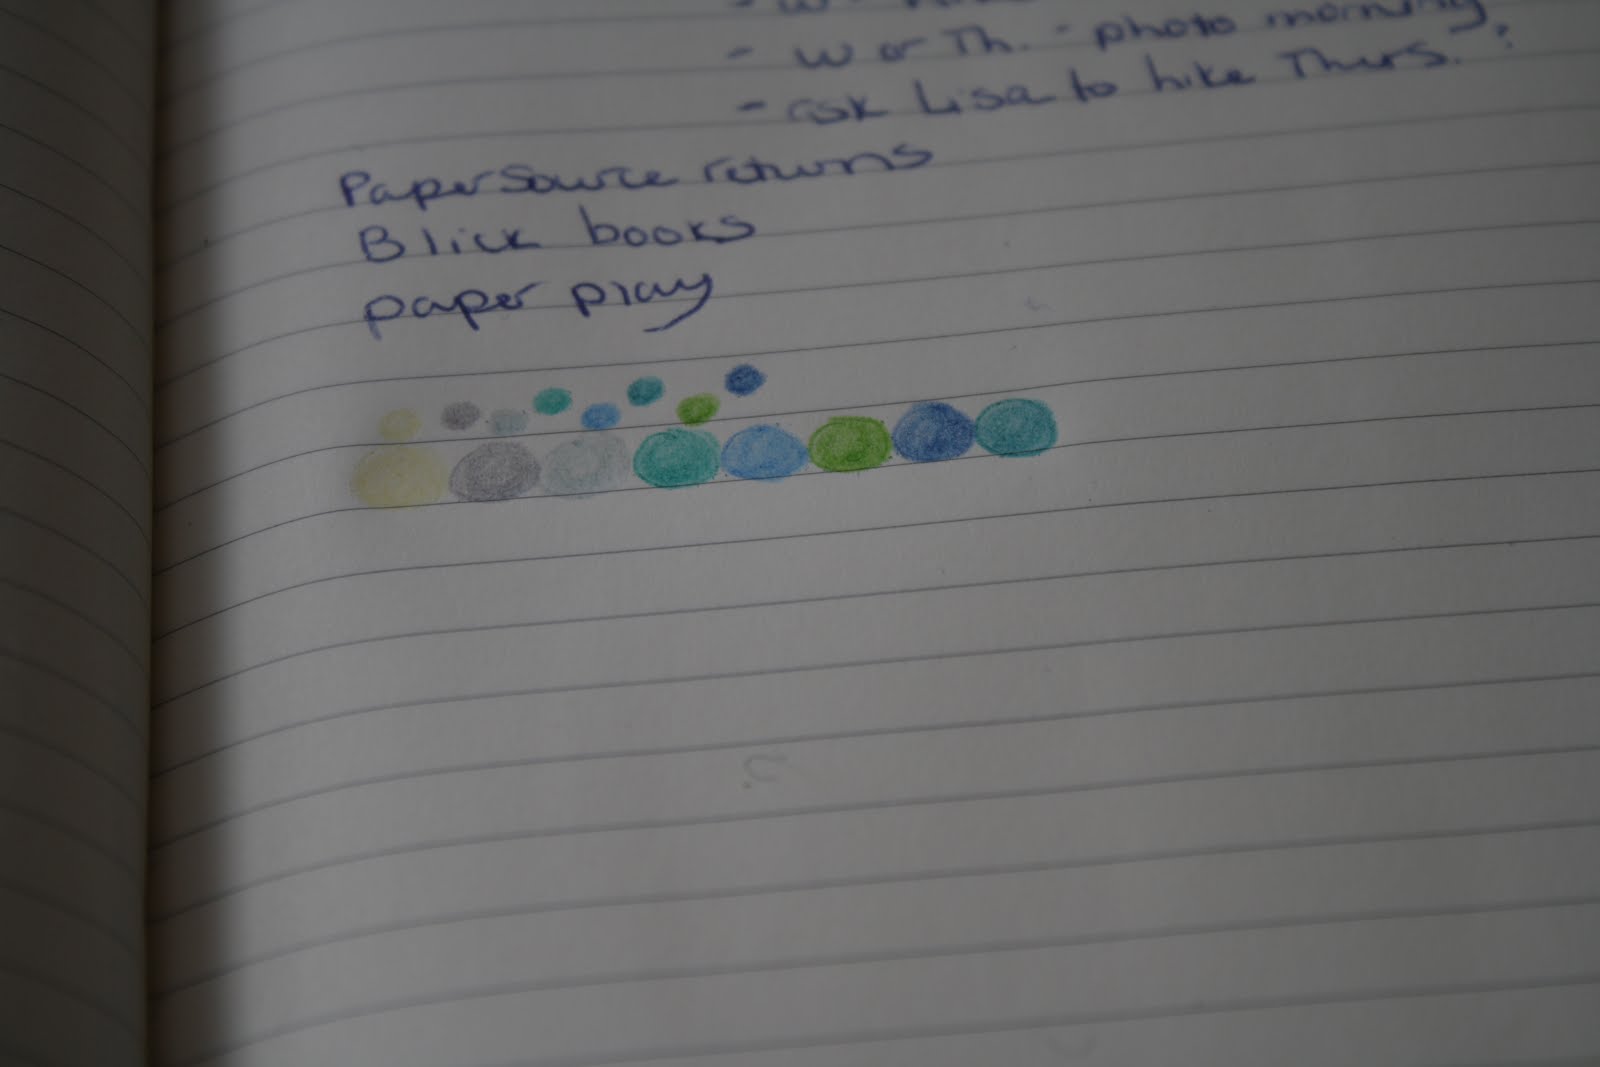 - W -
- W or Th. - photo morning
- ask Lisa to hike Thurs.?
PaperSource returns
Blick books
paper play